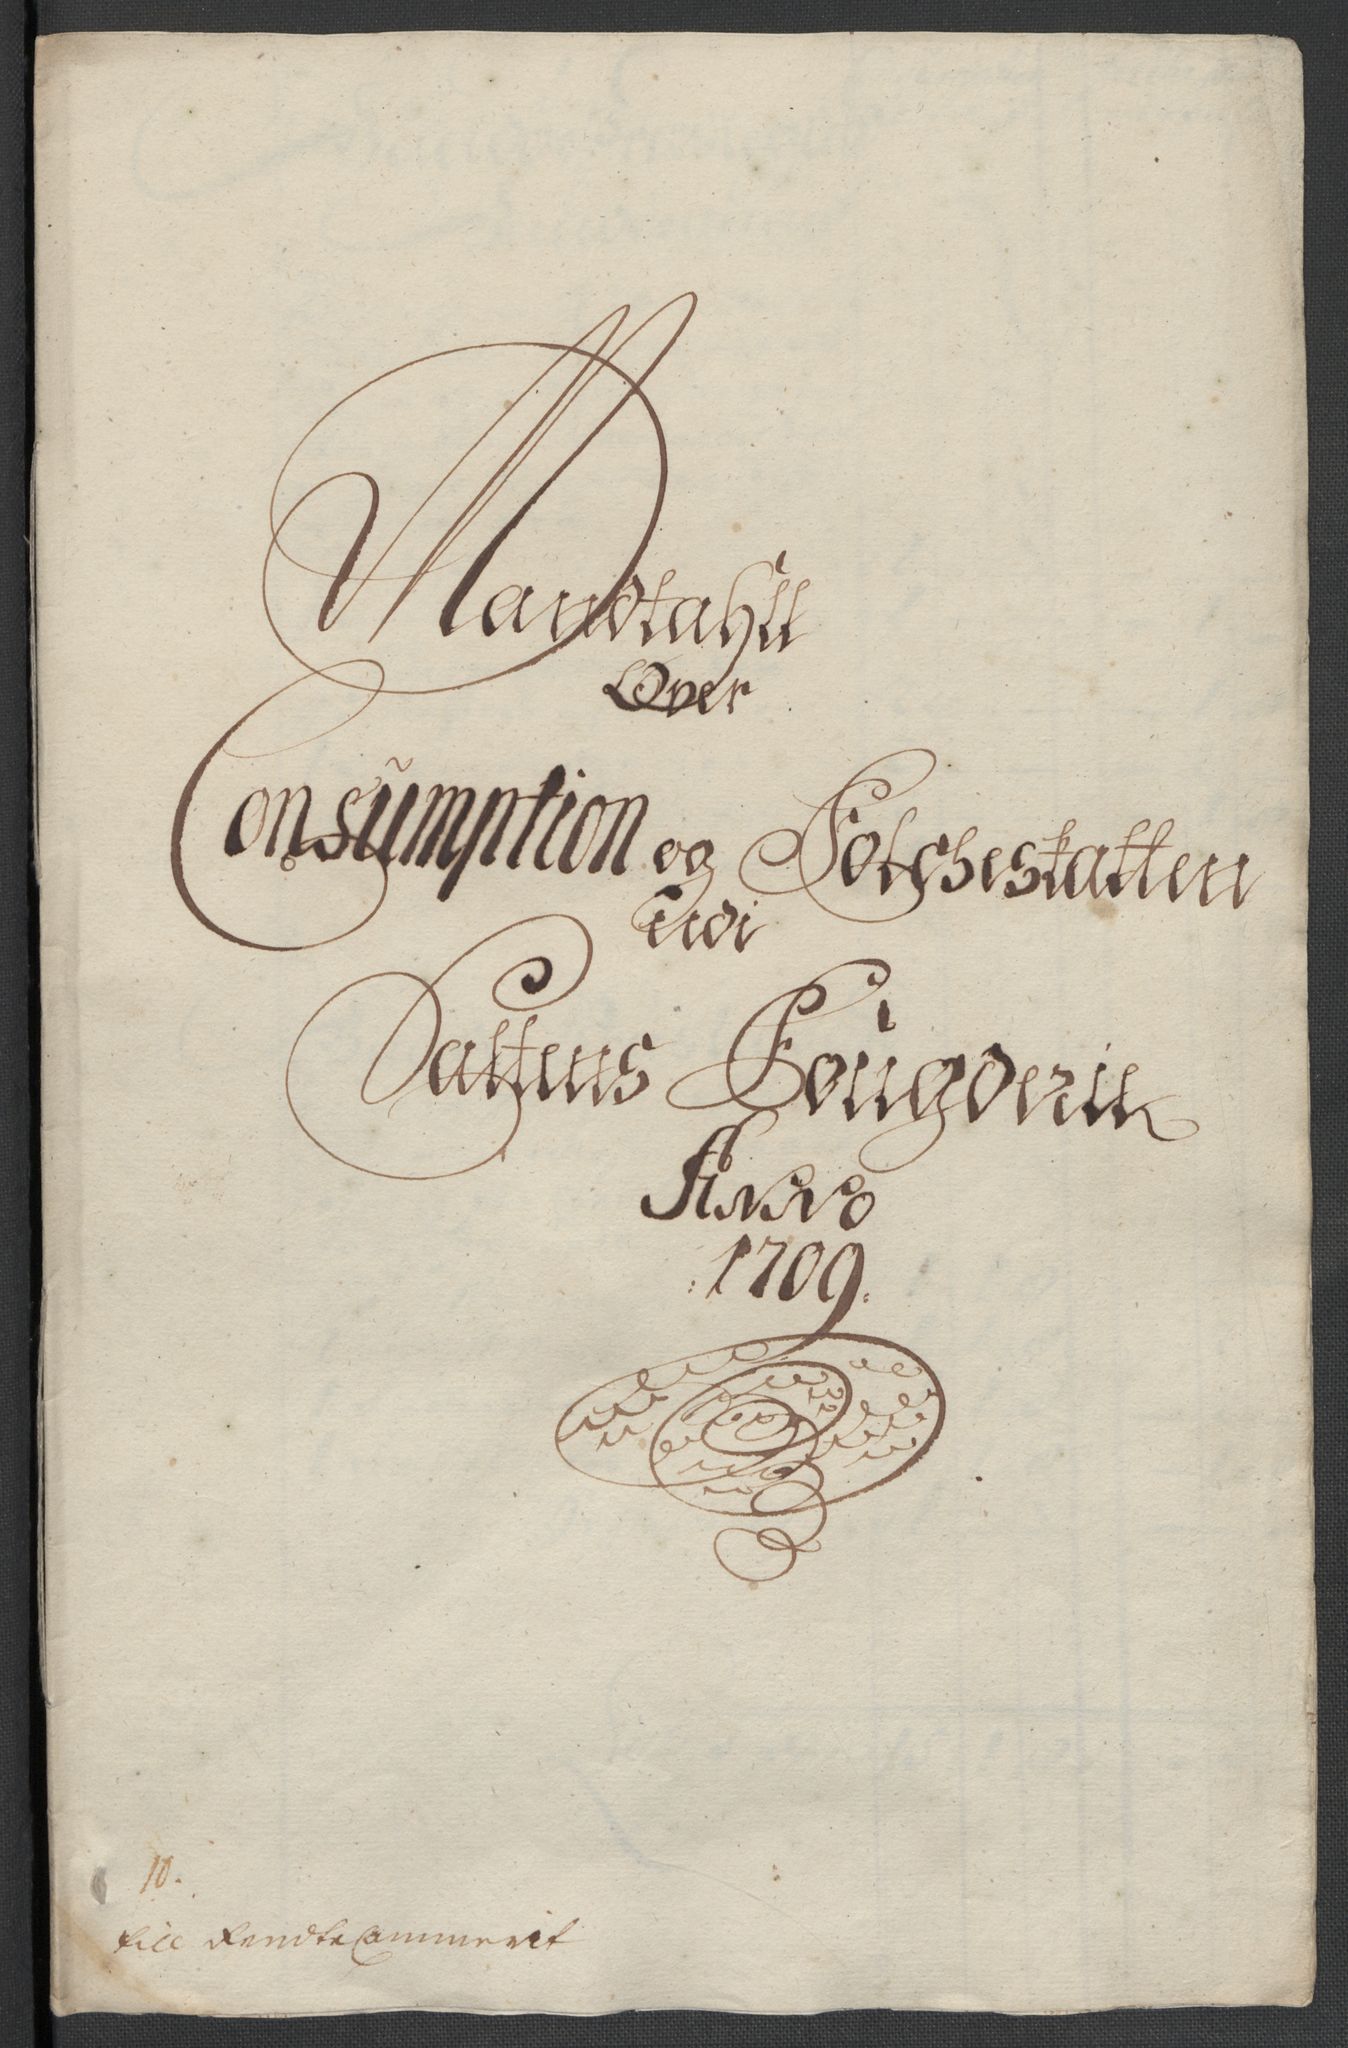 Mandtahll
Over
Consumption og Folchestatten
udi
Saltens Fougderie
Anno
1709.
10.
till RendteCammerit